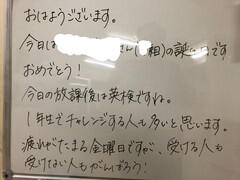 おはようございます。
今日は さん( 相)の誕 です
おめでとう！
今日の放課後は英検ですね。
1年生でチャレンジする人も多いと思います。
疲れがたまる金曜日ですが、受ける人も
受けない人もがんばろう！